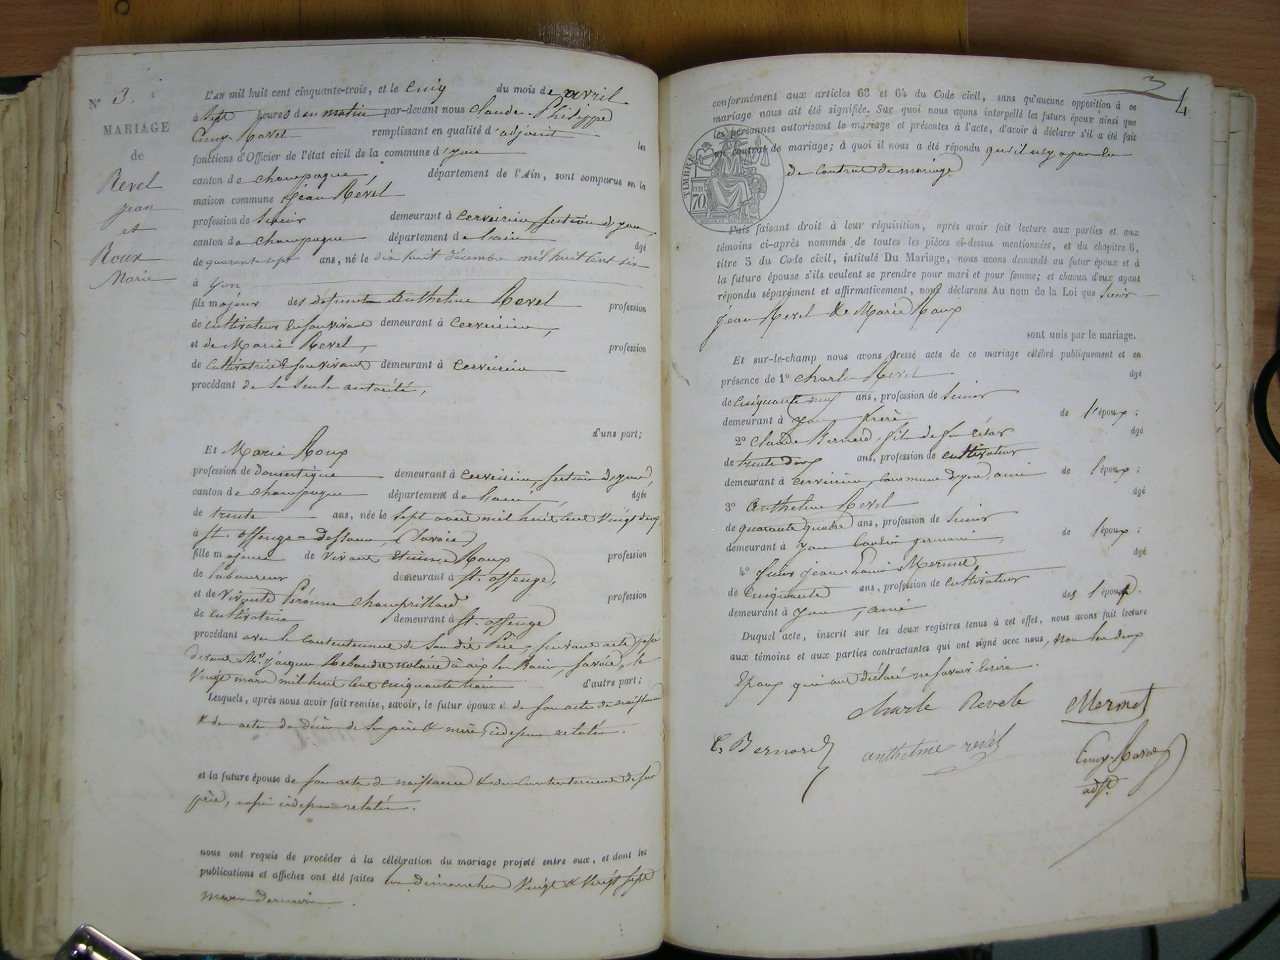 N° 3.
MARIAGE
de
Revel
Jean
et
Roux
Marie
L'AN mil huit cent cinquante-trois, et le cinq du mois de avril
à sept heures d en matin par-devant nous Claude Philippe
Cruy remplissant en qualité d'adjoint les
fonctions d'Officier de l'état civil de la commune d'
canton de champagne département de l'Ain, sont comparus en la
maison commune Jean Révél
profession de demeurant à Cerveirieu, section d'
canton de champagne département de l'ain âgé
de quarante sept ans, né le dix huit décembre mil huit cent six
à
fils majeur des défunts Anthelme Revel profession
de cultivateur en son vivant demeurant à Cerveirieu,
et de Marie Revel, profession
de cultivatrice de son vivant demeurant à Cerveirieu
procédant de sa seule autorité,
d'une part;
Et Marie Roux
profession de domestique demeurant à Cerveirieu, section d'
canton de champagne département de l'ain, âgée
de trente ans, née le sept mil huit cent vingt deux
à St. offenge-dessous, (Savoie)
fille majeure de vivant Etienne Roux profession
de laboureur demeurant à St. offenge,
et de vivante Péronne profession
de cultivatrice demeurant à St. offenge
procédant avec le consentement de son dit Père, suivant acte passé
devant Me. Jacques notaire à aix les Bains, Savoie, le
vingt mars mil huit cent cinquante trois d'autre part;
Lesquels, après nous avoir fait remise, savoir, le futur époux de son acte de naissance
& des actes de décès de ses père & mère, relatés.
et la future épouse de son acte de naissance & du consentement de son
père, aussi relatés.
nous ont requis de procéder à la célébration du mariage projeté entre eux, et dont les
publications et affiches ont été faites les dimanches vingt & vingt sept
mars dernier.
3
4
conformément aux articles 63 et 64 du Code civil, sans qu'aucune opposition à ce
mariage nous ait été signifiée. Sur quoi nous avons interpellé les futurs époux ainsi que
les personnes autorisant le mariage et présentes à l'acte, d'avoir à déclarer s'il a été fait
un contrat de mariage; à quoi il nous a été répondu qu'il n'y a pas eu
de contrat de mariage
TIMBRE
70
Puis faisant droit à leur réquisition, après avoir fait lecture aux parties et aux
témoins ci-après nommés de toutes les pièces ci-dessus mentionnées, et du chapitre 6,
titre 5 du Code civil, intitulé Du Mariage, nous avons demandé au futur époux et à
la future épouse s'ils veulent se prendre pour mari et pour femme; et chacun d'eux ayant
répondu séparément et affirmativement, nous déclarons Au nom de la Loi que
Jean Revel & Marie Roux
sont unis par le mariage.
Et sur-le-champ nous avons dressé acte de ce mariage célébré publiquement et en
présence de 1° Charle Revel âgé
de cinquante neuf ans, profession de
demeurant à frère de l'époux;
2° Claude Bernard, fils de feu César âgé
de trente deux ans, profession de cultivateur
demeurant à Cerveirieu, commune d' ami de l'époux;
3° Anthelme Revel âgé
de quarante quatre ans, profession de
demeurant à cousin germain, de l'époux;
4° Jean Louis Mermet, âgé
de cinquante ans, profession de cultivateur
demeurant à , ami des l'époux.
Duquel acte, inscrit sur les deux registres tenus à cet effet, nous avons fait lecture
aux témoins et aux parties contractantes qui ont signé avec nous, non les deux
époux qui ont déclaré ne savoir écrire.
Charle Revele
Mermet
C. Bernard
anthelme revel
adjt.